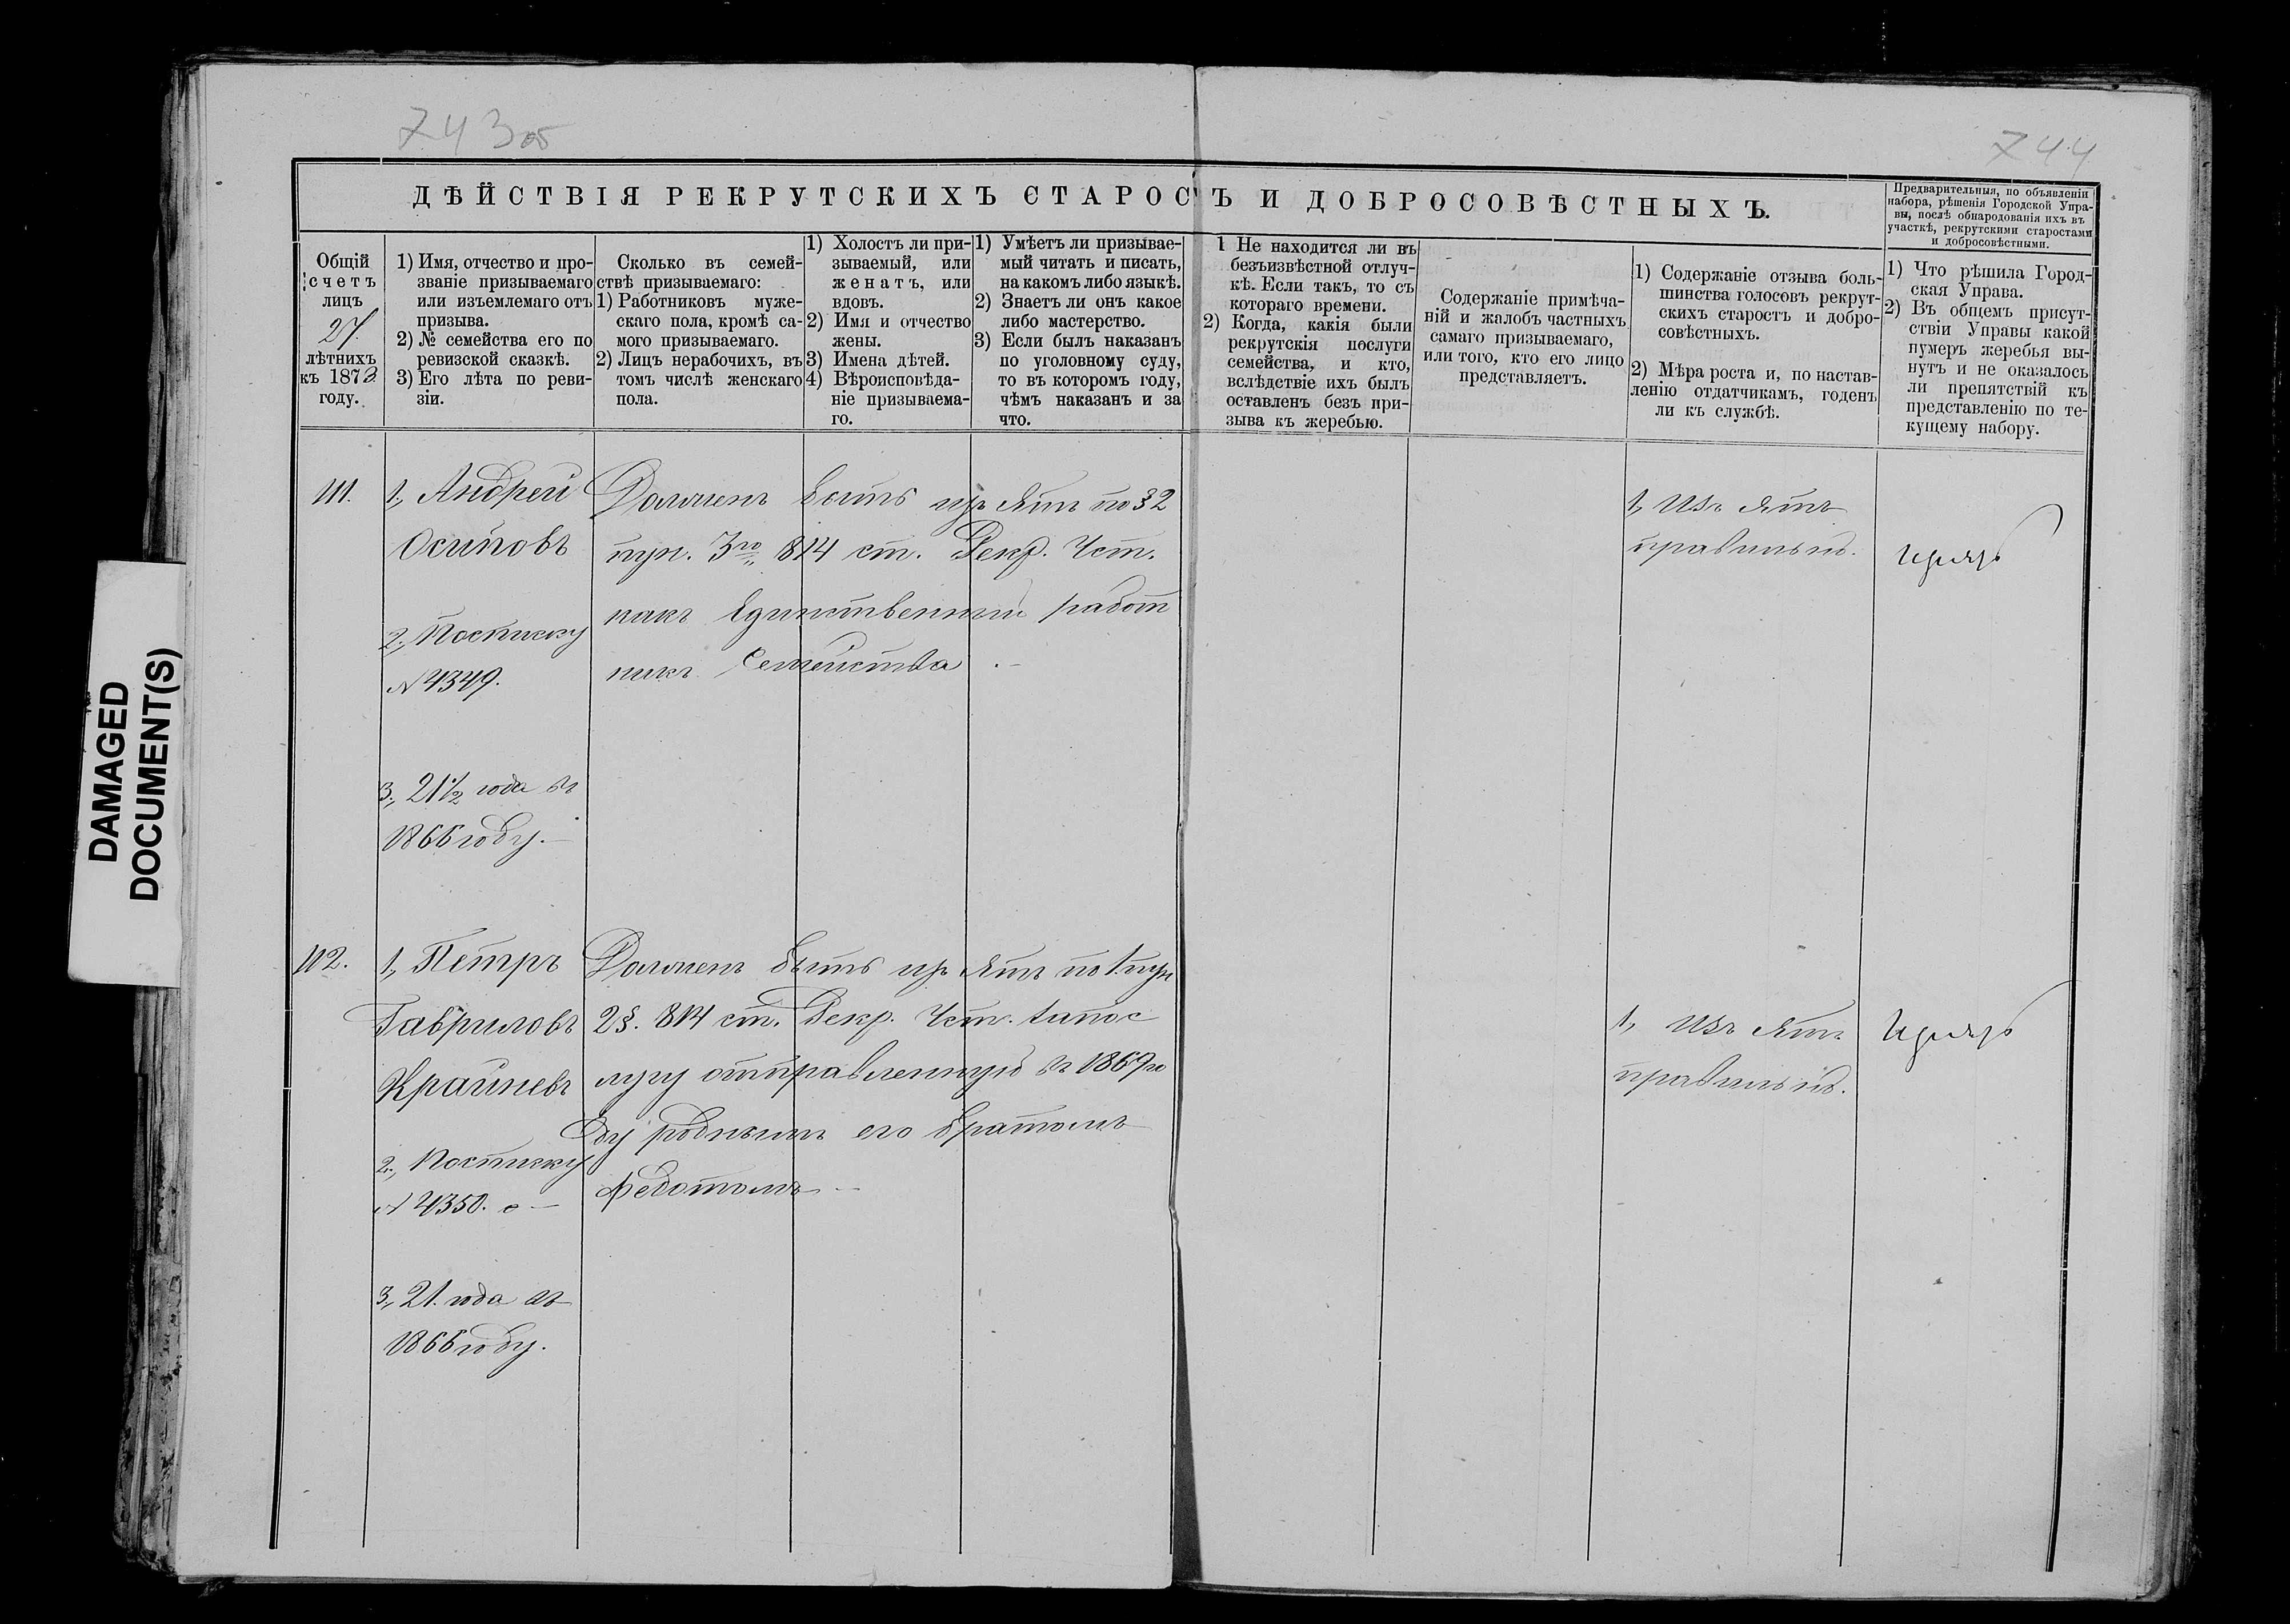 743об
744
ДѢЙСТВІЯ РЕКРУТСКИХЪ СТАРОСТЪ И ДОБРОСОВѢСТНЫХЪ.
Предварительныя, по объявленіи
набора, рѣшенія Городской Упра-
вы, послѣ обнародованія ихъ въ
участкѣ, рекрутскими старостами
и добросовѣстными.
Общій
счетъ
лицъ
27
лѣтнихъ
къ 1873
году.
1) Имя, отчество и про-
званіе призываемаго
или изъемлемаго отъ
призыва.
2) № семейства его по
ревизской сказкѣ.
3) Его лѣта по реви-
зіи.
Сколько въ семей-
ствѣ призываемаго:
1) Работниковъ муже-
скаго пола, кромѣ са-
мого призываемаго.
2) Лицъ нерабочихъ, въ
томъ числѣ женскаго
пола.
1) Холостъ ли при-
зываемый, или
женатъ, или
вдовъ.
2) Имя и отчество
жены.
3) Имена дѣтей.
4) Вѣроисповѣда-
ніе призываема-
го.
1) Умѣетъ ли призывае-
мый читать и писать,
на какомъ либо языкѣ.
2) Знаетъ ли онъ какое
либо мастерство.
3) Если былъ наказанъ
по уголовному суду,
то въ которомъ году,
чѣмъ наказанъ и за
что.
1 Не находится ли въ
безъизвѣстной отлуч-
кѣ. Если такъ, то съ
котораго времени.
2) Когда, какія были
рекрутскія послуги
семейства, и кто,
вслѣдствіе ихъ былъ
оставленъ безъ при-
зыва къ жеребью.
Содержаніе примѣча-
ній и жалобъ частныхъ
самаго призываемаго,
или того, кто его лицо
представляетъ.
1) Содержаніе отзыва боль-
шинства голосовъ рекрут-
скихъ старостъ и добро-
совѣстныхъ.
2) Мѣра роста и, по настав-
ленію отдатчикамъ, годенъ
ли къ службѣ.
1) Что рѣшила Город-
ская Управа.
2) Въ общемъ присут-
ствіи Управы какой
нумеръ жеребья вы-
нутъ и не оказалось
ли препятствій къ
представленію по те-
кущему набору.
111.
1., Андрей
Осиповъ
2., По списку
№ 4349.
3., 21½ года въ
1866 году.—
Долженъ быть изъятъ по § 2
пун. 3го 814 ст. Рекр. Уст.
какъ единственный работ
никъ семейства.—
1., Изъятъ
правильно.
Изъятъ
112.
1., Петръ
Гавриловъ
Крайневъ
2., По списку
№ 4350.—
3., 21. года въ
1866 году.
Долженъ быть изъятъ по 1 пун
2 §. 814 ст. Рекр. Уст. за пос
лугу отправленную въ 1869 го
ду роднымъ его братомъ
Федотомъ—
1., Изъятъ
правильно.
Изъятъ
DAMAGED
DOCUMENT(S)